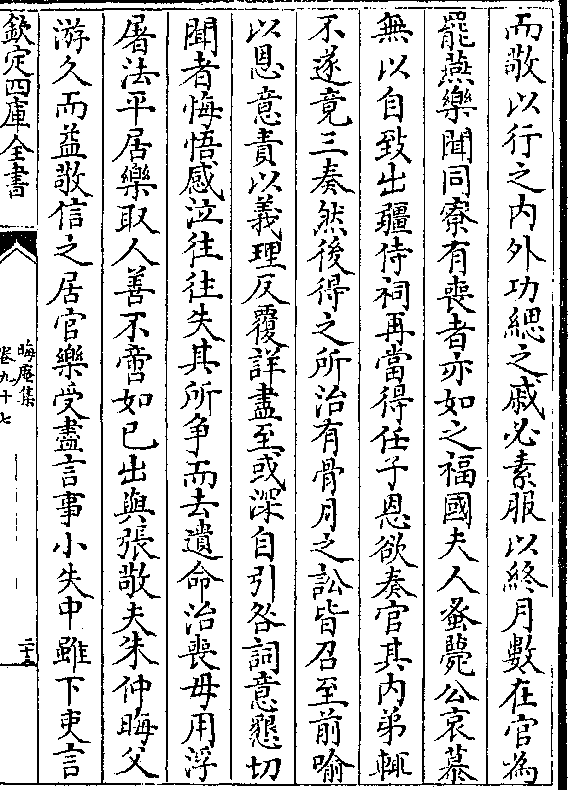 而敬以行之内外功緦之戚必素服以終月數在官為
罷燕樂聞同寮有喪者亦如之福國夫人蚤薨公哀慕
無以自致出疆侍祠再當得任子恩欲奏官其内弟輒
不遂竟三奏然後得之所治有骨月之訟皆召至前喻
以恩意責以義理反覆詳盡至或深自引咎詞意懇切
聞者悔悟感泣往往失其所争而去遺命治喪毋用浮
屠法平居樂取人善不啻如已出與張敬夫朱仲晦父
游久而益敬信之居官樂受盡言事小失中雖下吏言
欽定四庫全書
晦庵集
卷九十七
二十五